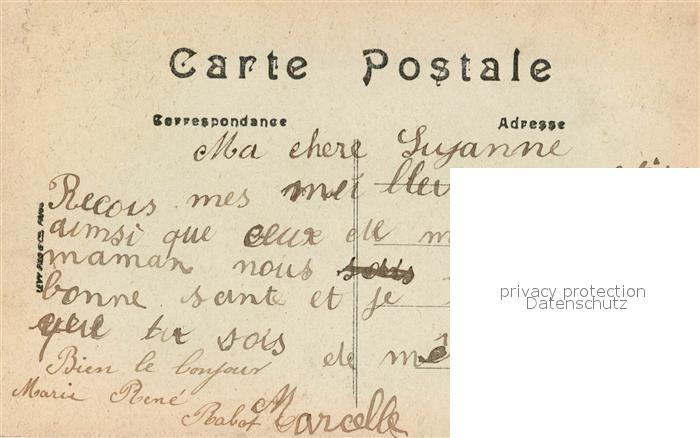 Carte Postale
Correspondance Adresse
Ma chere Suzanne
Recois mes meilleu
ainsi que ceux de m
maman nous sois
bonne sante et je
que tu sois de mê
Bien le bonjour
Marie René
Rabot Marcelle
privacy protection
Datenschutz